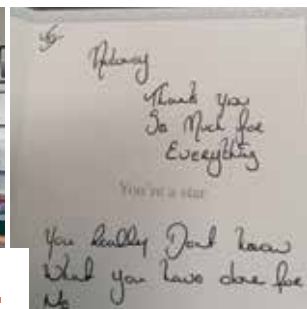 Thank you
So Much for
Everything
You're a star
You Really Dont know
What you have done for
Me